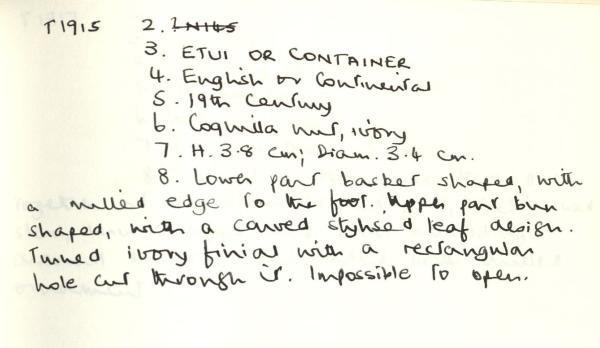 T1915 2. LN145
3. ETUI OR CONTAINER
4. English or Continental
5. 19th Century
6. Coquilla nut, ivory
7. H. 3.8 cm; Diam. 3.4 cm.
8. Lower part basket shaped, with
a milled edge to the foot. Upper part bun
shaped, with a carved stylised leaf design.
Turned ivory finial with a rectangular
hole cut through it. Impossible to open.